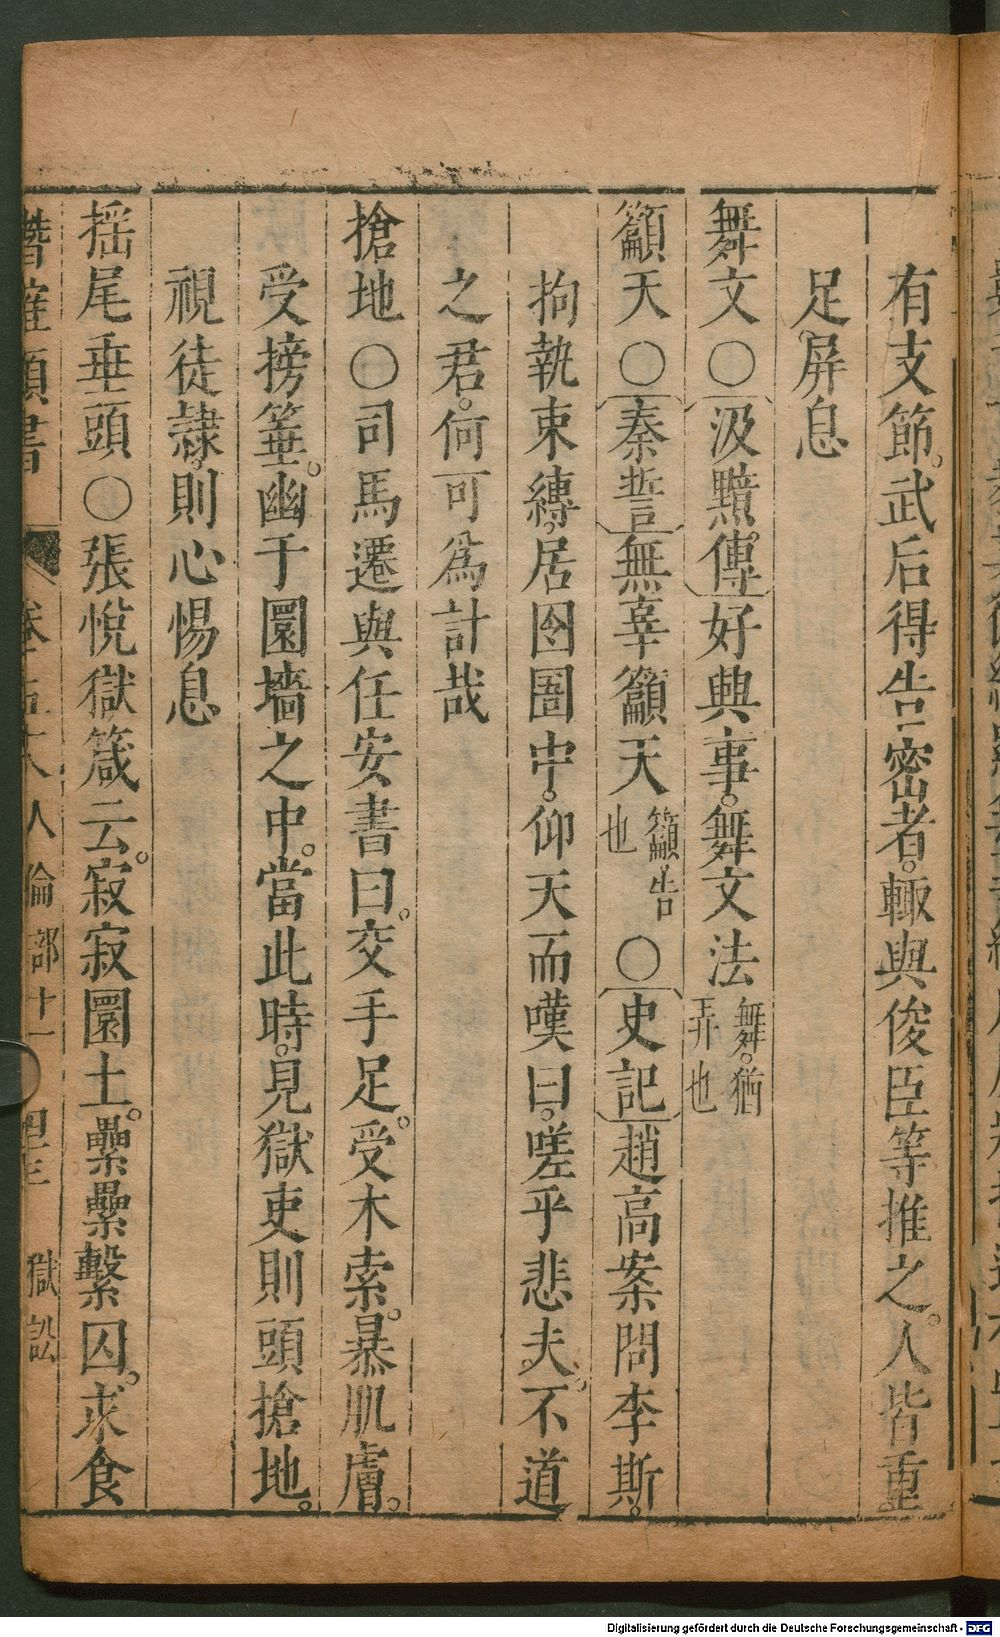 有支節。武后得告密者。輙與俊臣等推之。人皆重
足屏息
舞文○汲黯傳好興事。舞文法舞。猶弄也
籲天○秦誓無辜籲天籲。告也○史記趙高案問李斯。
拘執束縛。居囹圄中。仰天而嘆曰。嗟乎悲夫。不道
之君。何可爲計哉
搶地○司馬遷與任安書曰。交手足。受木索。暴肌膚。
受搒箠。幽于圜墻之中。當此時。見獄吏則頭搶地。
視徒隷。則心惕息
揺尾垂頭○張悅獄箴云。寂寂圜土。纍纍繫囚。求食
潛確類書 卷 人倫部十一 四三 獄訟
Digitalisierung gefördert durch die Deutsche Forschungsgemeinschaft - DFG